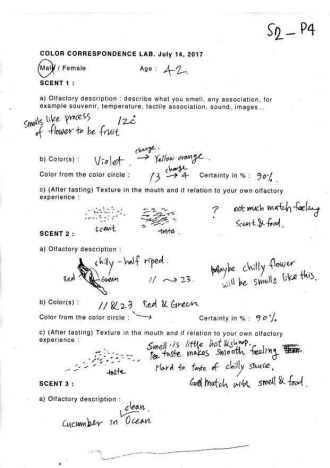 S2 - P4
COLOR CORRESPONDENCE LAB. July 14, 2017
Male / Female Age : 42
SCENT 1 :
a) Olfactory description : describe what you smell, any association, for
example souvenir, temperature, tactile association, sound, images...
Smells like process 12c
of flower to be fruit
change.
b) Color(s) : Violet → Yellow orange.
change
Color from the color circle : 13 → 4 Certainty in % : 90%.
c) (After tasting) Texture in the mouth and if relation to your own olfactory
experience :
? not much match feeling
scent & food.
scent taste.
SCENT 2 :
a) Olfactory description :
chilly - half riped.
Red Green 11 ~> 23.
Maybe chilly flower
will be smells like this.
b) Color(s) : 11 & 23 Red & Green
Color from the color circle : Certainty in % : 90%.
c) (After tasting) Texture in the mouth and if relation to your own olfactory
experience :
Smell is little hot & sharp.
taste makes smooth feeling
Hard to taste of chilly sauce.
taste
match with smell & food.
SCENT 3 :
a) Olfactory description :
clean.
Cucumber in Ocean